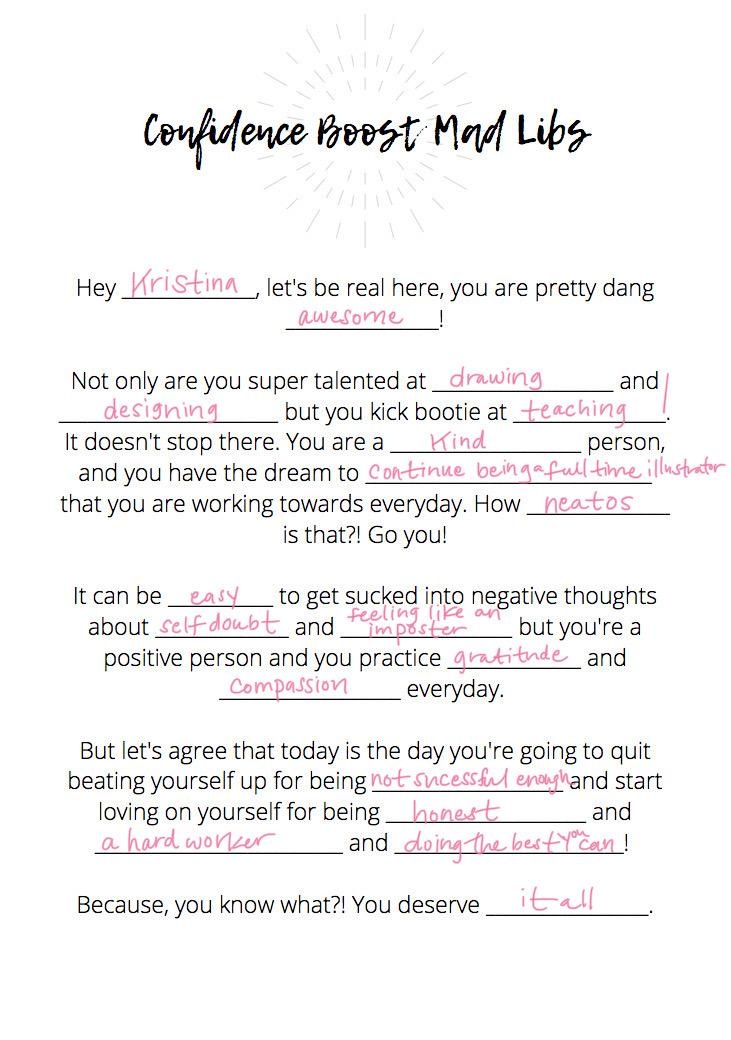 Confidence Boost Mad Libs
Hey Kristina, let's be real here, you are pretty dang
awesome!
Not only are you super talented at drawing and
designing but you kick bootie at teaching!
It doesn't stop there. You are a Kind person,
and you have the dream to continue being a full time illustrator
that you are working towards everyday. How neatos
is that?! Go you!
It can be easy to get sucked into negative thoughts
about self doubt and feeling like an imposter but you're a
positive person and you practice gratitude and
compassion everyday.
But let's agree that today is the day you're going to quit
beating yourself up for being not sucessful enough and start
loving on yourself for being honest and
a hard worker and doing the best you can!
Because, you know what?! You deserve it all.